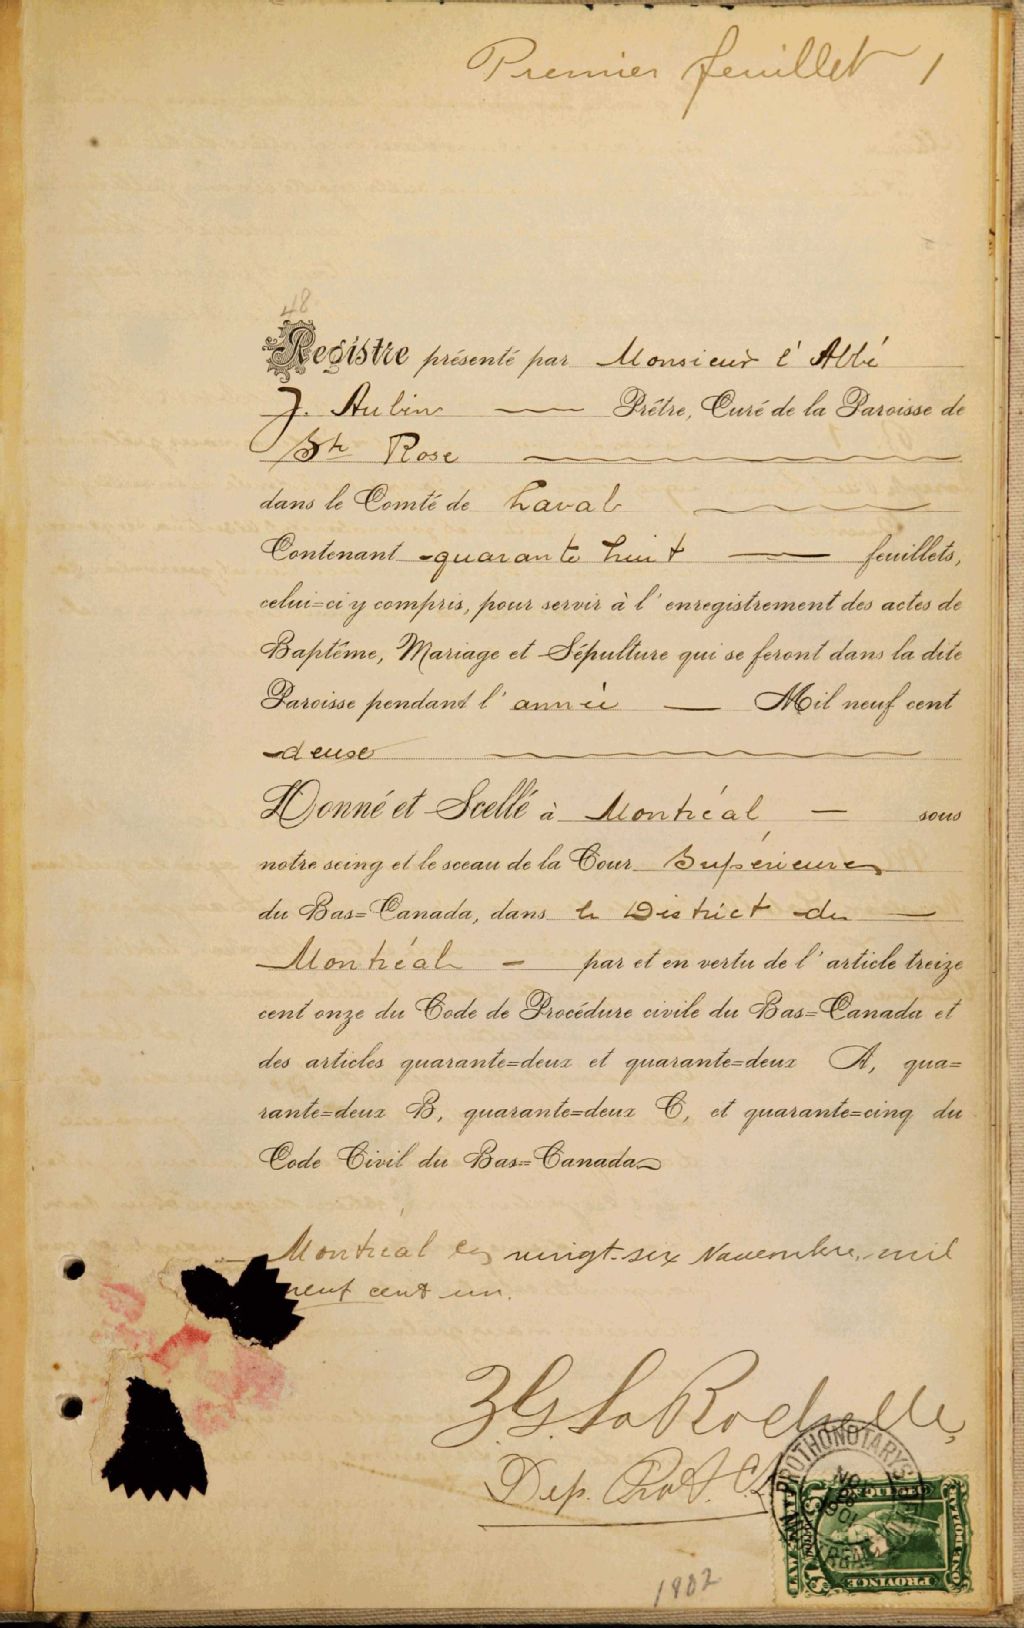 Premier feuillet 1
48
Registre présenté par Monsieur l'Abbé
J. Aubin Prêtre, Curé de la Paroisse de
Ste Rose
dans le Comté de Laval
Contenant quarante huit feuillets,
celui=ci y compris, pour servir à l'enregistrement des actes de
Baptême, Mariage et Sépulture qui se feront dans la dite
Paroisse pendant l'année Mil neuf cent
deux
Donné et Scellé à Montréal sous
notre seing et le sceau de la Cour Supérieure
du Bas=Canada, dans le District de
Montréal par et en vertu de l'article treize
cent onze du Code de Procédure civile du Bas=Canada et
des articles quarante=deux et quarante=deux A, qua=
rante=deux B, quarante=deux C, et quarante=cinq du
Code Civil du Bas=Canada
Montréal le vingt-six Novembre, mil
neuf cent un.
Z. G. LaRochelle,
Dep. Prot. C.S.
PROTHONOTARY'S
PROVINCE
1902